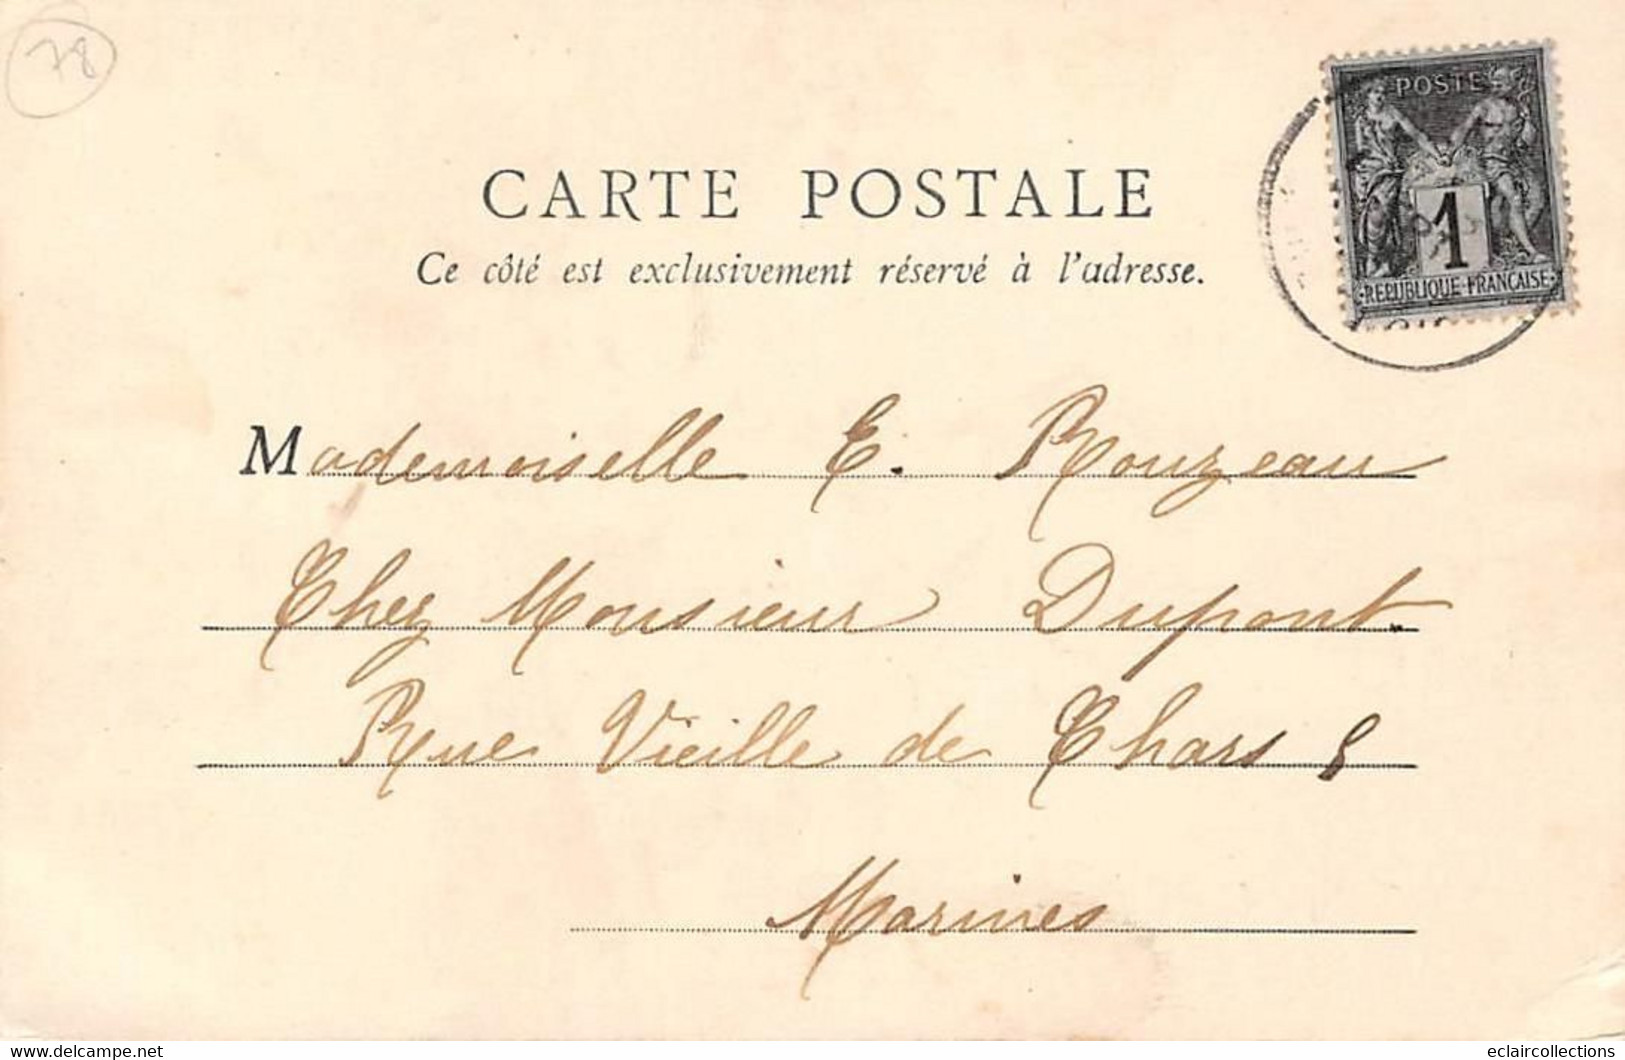 78
POSTE
1
REPUBLIQUE FRANCAISE
CARTE POSTALE
Ce côté est exclusivement réservé à l'adresse.
Mademoiselle E. Rouzeau
Chez Monsieur Dupont.
Rue Vieille de Chars
Marines
www.delcampe.net
eclaircollections